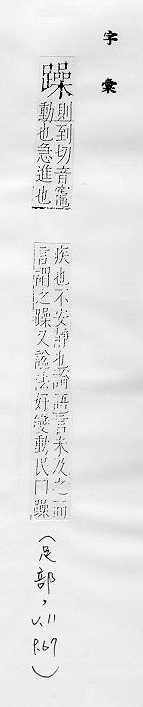 字彙
躁
則到切音竈
動也急進也
疾也不安靜也論語言未及之而
言謂之躁又諡法好變動民曰躁
(足部,v.11
p.67)